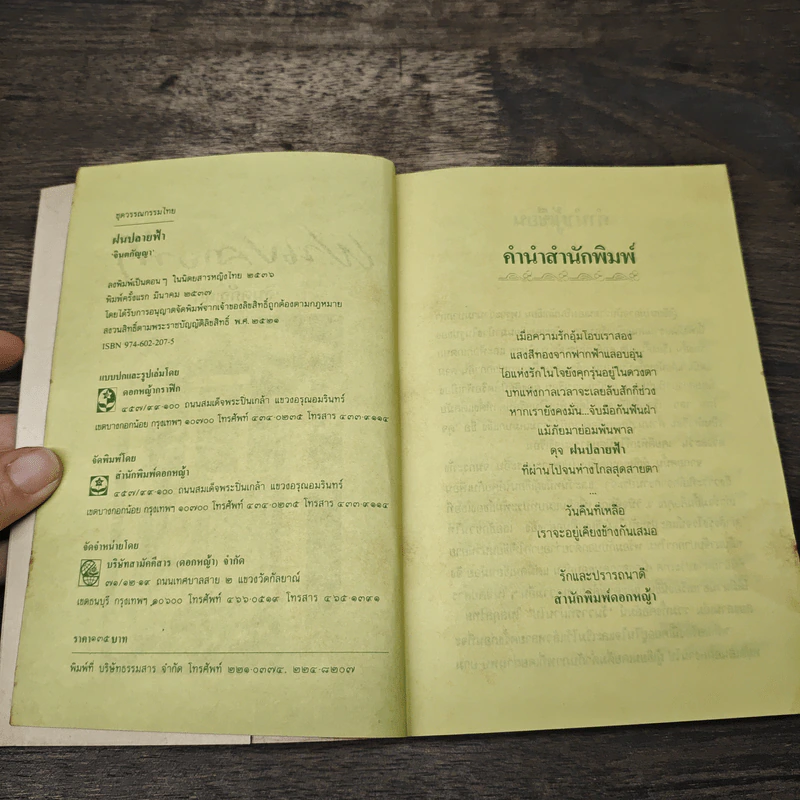 ชุดวรรณกรรมไทย
ฝนปลายฟ้า
'จินตกัญญา'
ลงพิมพ์เป็นตอนๆ ในนิตยสารหญิงไทย ๒๕๓๖
พิมพ์ครั้งแรก มีนาคม ๒๕๓๗
โดยได้รับการอนุญาตจัดพิมพ์จากเจ้าของลิขสิทธิ์ถูกต้องตามกฎหมาย
สงวนสิทธิ์ตามพระราชบัญญัติลิขสิทธิ์ พ.ศ. ๒๕๒๑
ISBN 974-602-207-5
แบบปกและรูปเล่มโดย
ดอกหญ้ากราฟิก
๔๕๗/๙๙-๑๐๐ ถนนสมเด็จพระปิ่นเกล้า แขวงอรุณอมรินทร์
เขตบางกอกน้อย กรุงเทพฯ ๑๐๗๐๐ โทรศัพท์ ๔๓๔-๐๒๓๕ โทรสาร ๔๓๓-๙๑๑๔
จัดพิมพ์โดย
สำนักพิมพ์ดอกหญ้า
๔๕๗/๙๙-๑๐๐ ถนนสมเด็จพระปิ่นเกล้า แขวงอรุณอมรินทร์
เขตบางกอกน้อย กรุงเทพฯ ๑๐๗๐๐ โทรศัพท์ ๔๓๔-๐๒๓๕ โทรสาร ๔๓๓-๙๑๑๔
จัดจำหน่ายโดย
บริษัทสามัคคีสาร (ดอกหญ้า) จำกัด
๓๑/๑๒-๑๙ ถนนเทศบาลสาย ๒ แขวงวัดกัลยาณ์
เขตธนบุรี กรุงเทพฯ ๑๐๖๐๐ โทรศัพท์ ๔๖๖-๐๕๑๙ โทรสาร ๔๖๕-๑๓๙๑
ราคา ๑๓๕ บาท
พิมพ์ที่ บริษัทธรรมสาร จำกัด โทรศัพท์ ๒๒๑-๐๓๗๔, ๒๒๔-๘๒๐๗
คำนำสำนักพิมพ์
เมื่อความรักอุ้มโอบเราสอง
แสงสีทองจากฟากฟ้าแลอบอุ่น
ไอแห่งรักในใจยังคุกรุ่นอยู่ในดวงตา
บทแห่งกาลเวลาจะเลยลับสักกี่ช่วง
หากเรายังคงมั่น...จับมือกันฟันฝ่า
แม้ภัยมาย่อมพ้นพาล
ดุจ ฝนปลายฟ้า
ที่ผ่านไปจนห่างไกลสุดสายตา
...
วันคืนที่เหลือ
เราจะอยู่เคียงข้างกันเสมอ
รักและปรารถนาดี
สำนักพิมพ์ดอกหญ้า